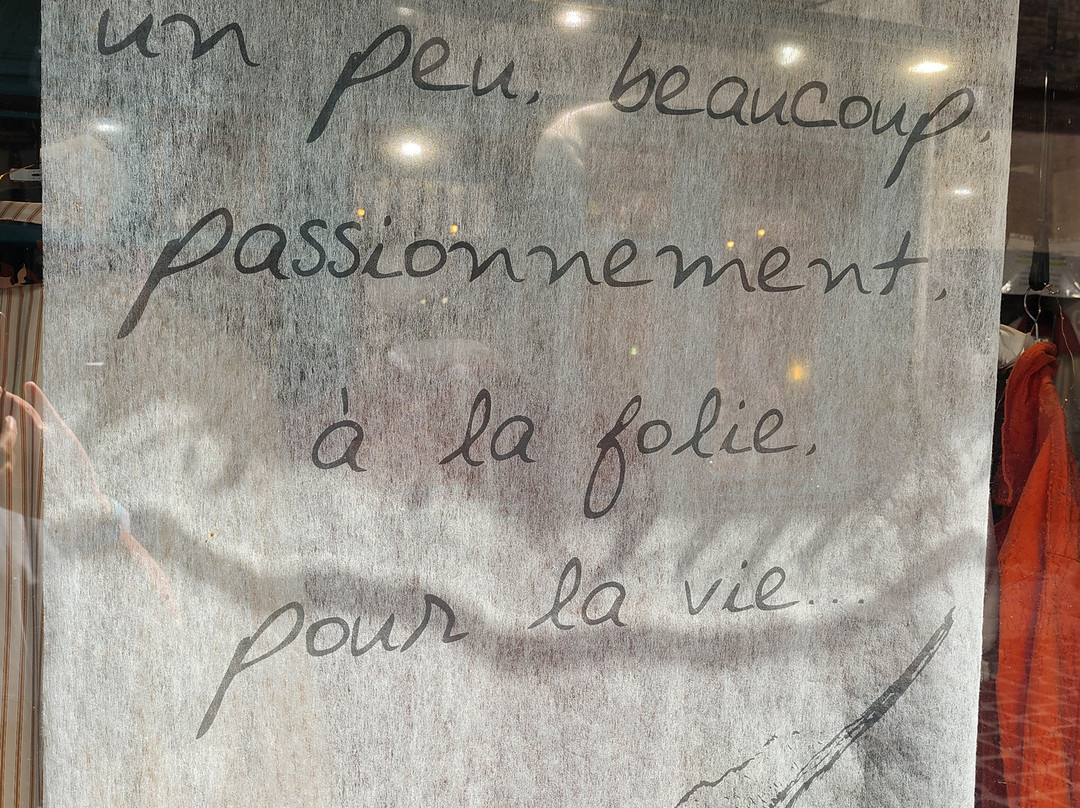 un peu, beaucoup,
passionnement,
à la folie,
pour la vie...